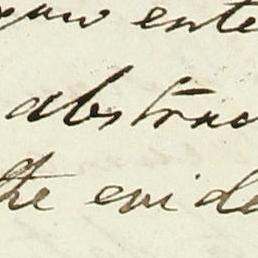 ente
abstrac
the evide